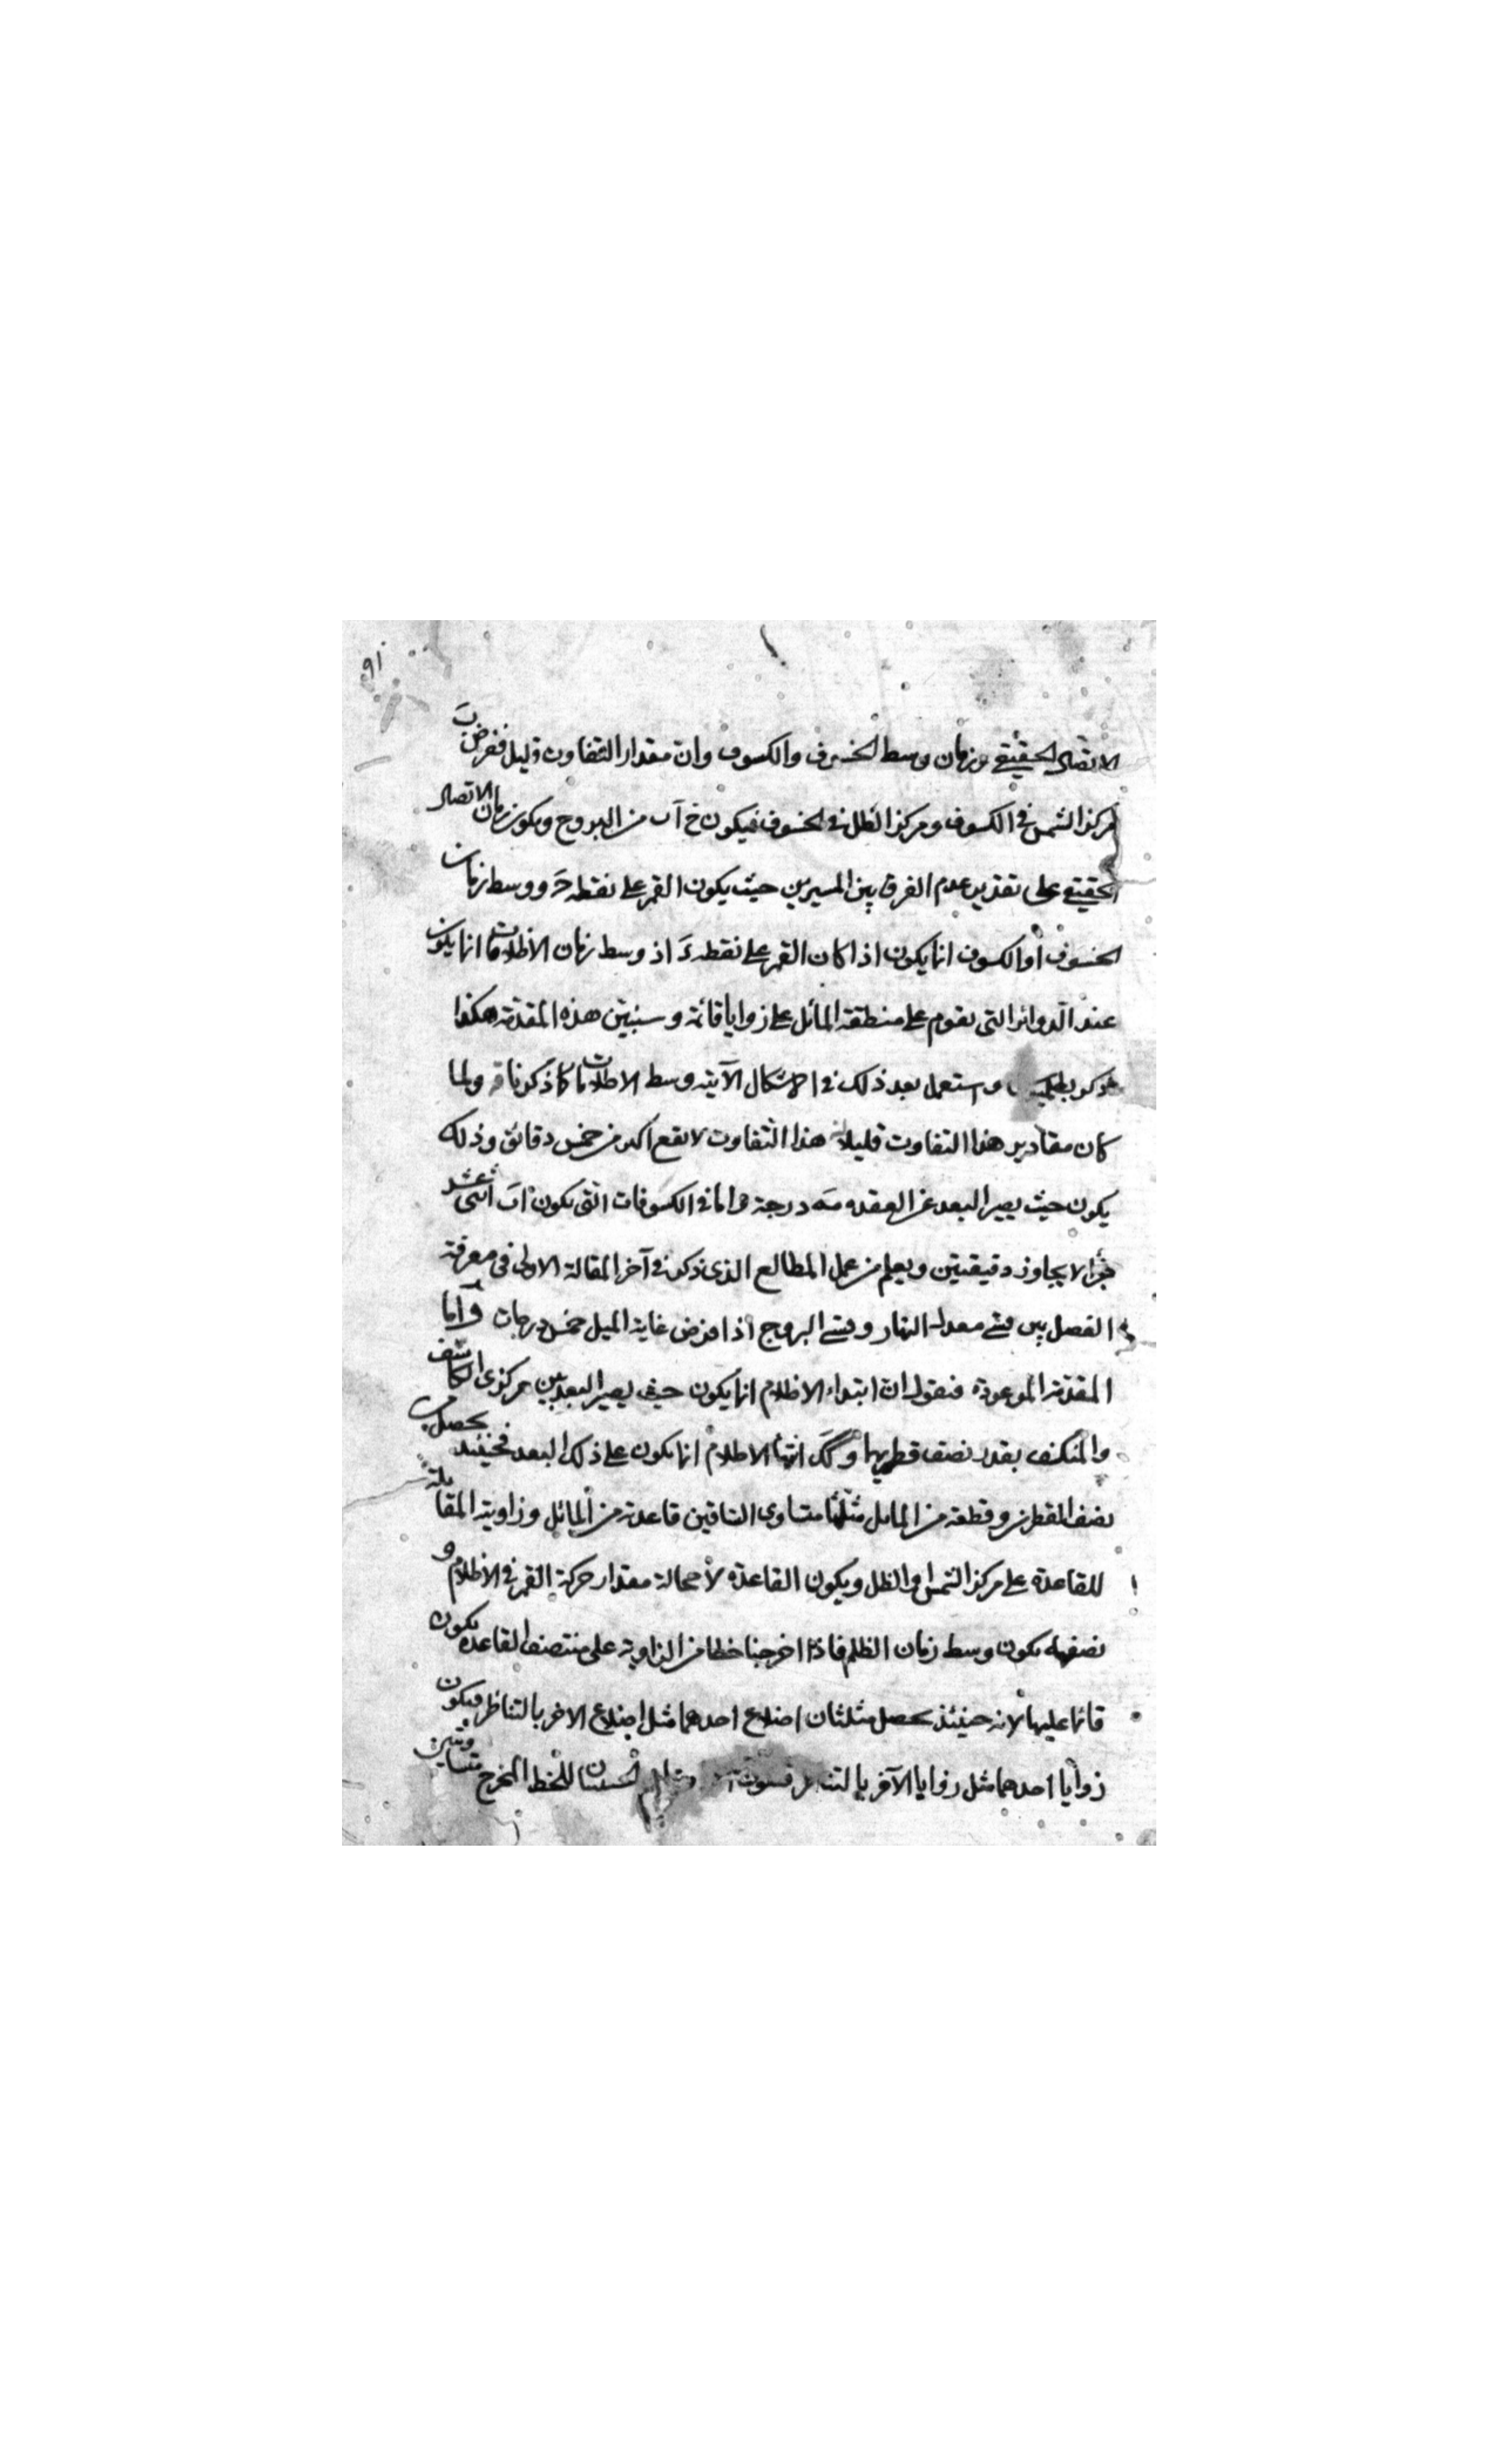 ٩١
الاتصال الحقيقى وزمان وسط الخسوف والكسوف وان مقدار التفاوت قليل فنفرض بَ
مركز الشمس فى الكسوف ومركز الظل فى الخسوف فيكون ح آب من البروج ويكون زمان الاتصال
الحقيقى على تقدير عدم الفرق بين المسيرين حيث يكون القمر على نقطة حَ ووسط زمان
الخسوف أو الكسوف انما يكون اذا كان القمر على نقطة دَ اذ وسط زمان الاظلامات انما يكون
عند الدوائر التى تقوم على منطقة المائل على زوايا قائمة وسنبين هذه المقدمة هكذا
ذكر بطلميوس واستعمل بعد ذلك فى الاشكال الآتية وسط الاظلامات كما ذكرنا ولما
كان مقادير هذا التفاوت قليلا هذا التفاوت لا يقع اكثر من خمس دقائق وذلك
يكون حيث يصير البعد عن العقدة مَه درجة واما فى الكسوفات التى يكون اَبَ اثنى عشر
جزءا لا يجاوز دقيقتين ويعلم من عمل المطالع الذى ذكر فى آخر المقالة الاولى فى معرفة
الفصل بين قسى معدل النهار وقسى البروج اذا فرض غاية الميل خمس درجات وأما
المقدمة الموعودة فنقول ان ابتداء الاظلام انما يكون حيث يصير البعد بين مركزى الكاشف
والمنكسف بقدر نصف قطريهما وكَك انتهاء الاظلام انما يكون على ذلك البعد فحينئذ يحصل من
نصف القطرين وقطعة من المائل مثلثا متساوى الساقين قاعدته من المائل وزاويته المقابلة
للقاعدة على مركز الشمس او الظل ويكون القاعدة لا محالة مقدار حركة القمر فى الاظلام و
نصفها يكون وسط زمان الظلم فاذا اخرجنا خطا من الزاوية على منتصف القاعدة يكون
قائما عليها لانه حينئذ يحصل مثلثان اضلاع احدهما مثل اضلاع الاخر بالتناظر فيكون
زوايا احدهما مثل زوايا الآخر بالتناظر فيكون للخط المخرج متساويتين